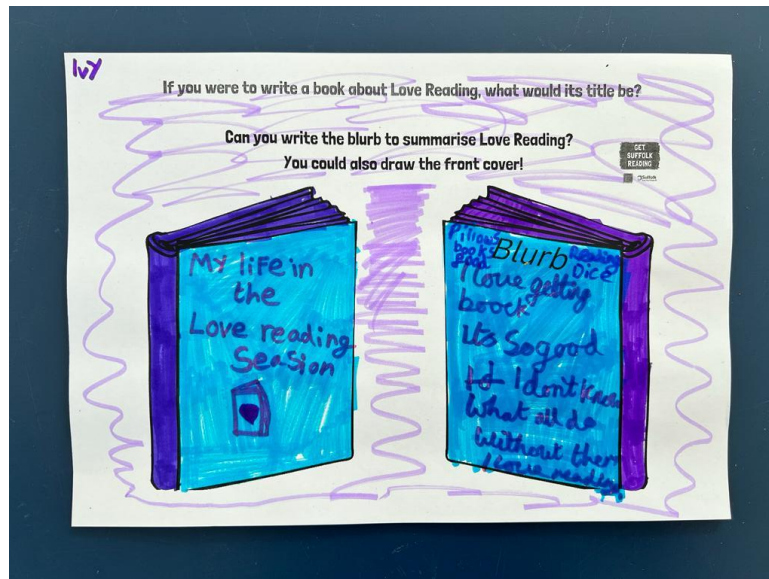 Ivy
If you were to write a book about Love Reading, what would its title be?
Can you write the blurb to summarise Love Reading?
You could also draw the front cover!
GET
SUFFOLK
READING
Suffolk
My life in
the
Love reading
Seasion
Pillows
books
good
Reading
Dice
Blurb
I love getting
boock
Its So good
I dont know
What all do
Without them
I love reading